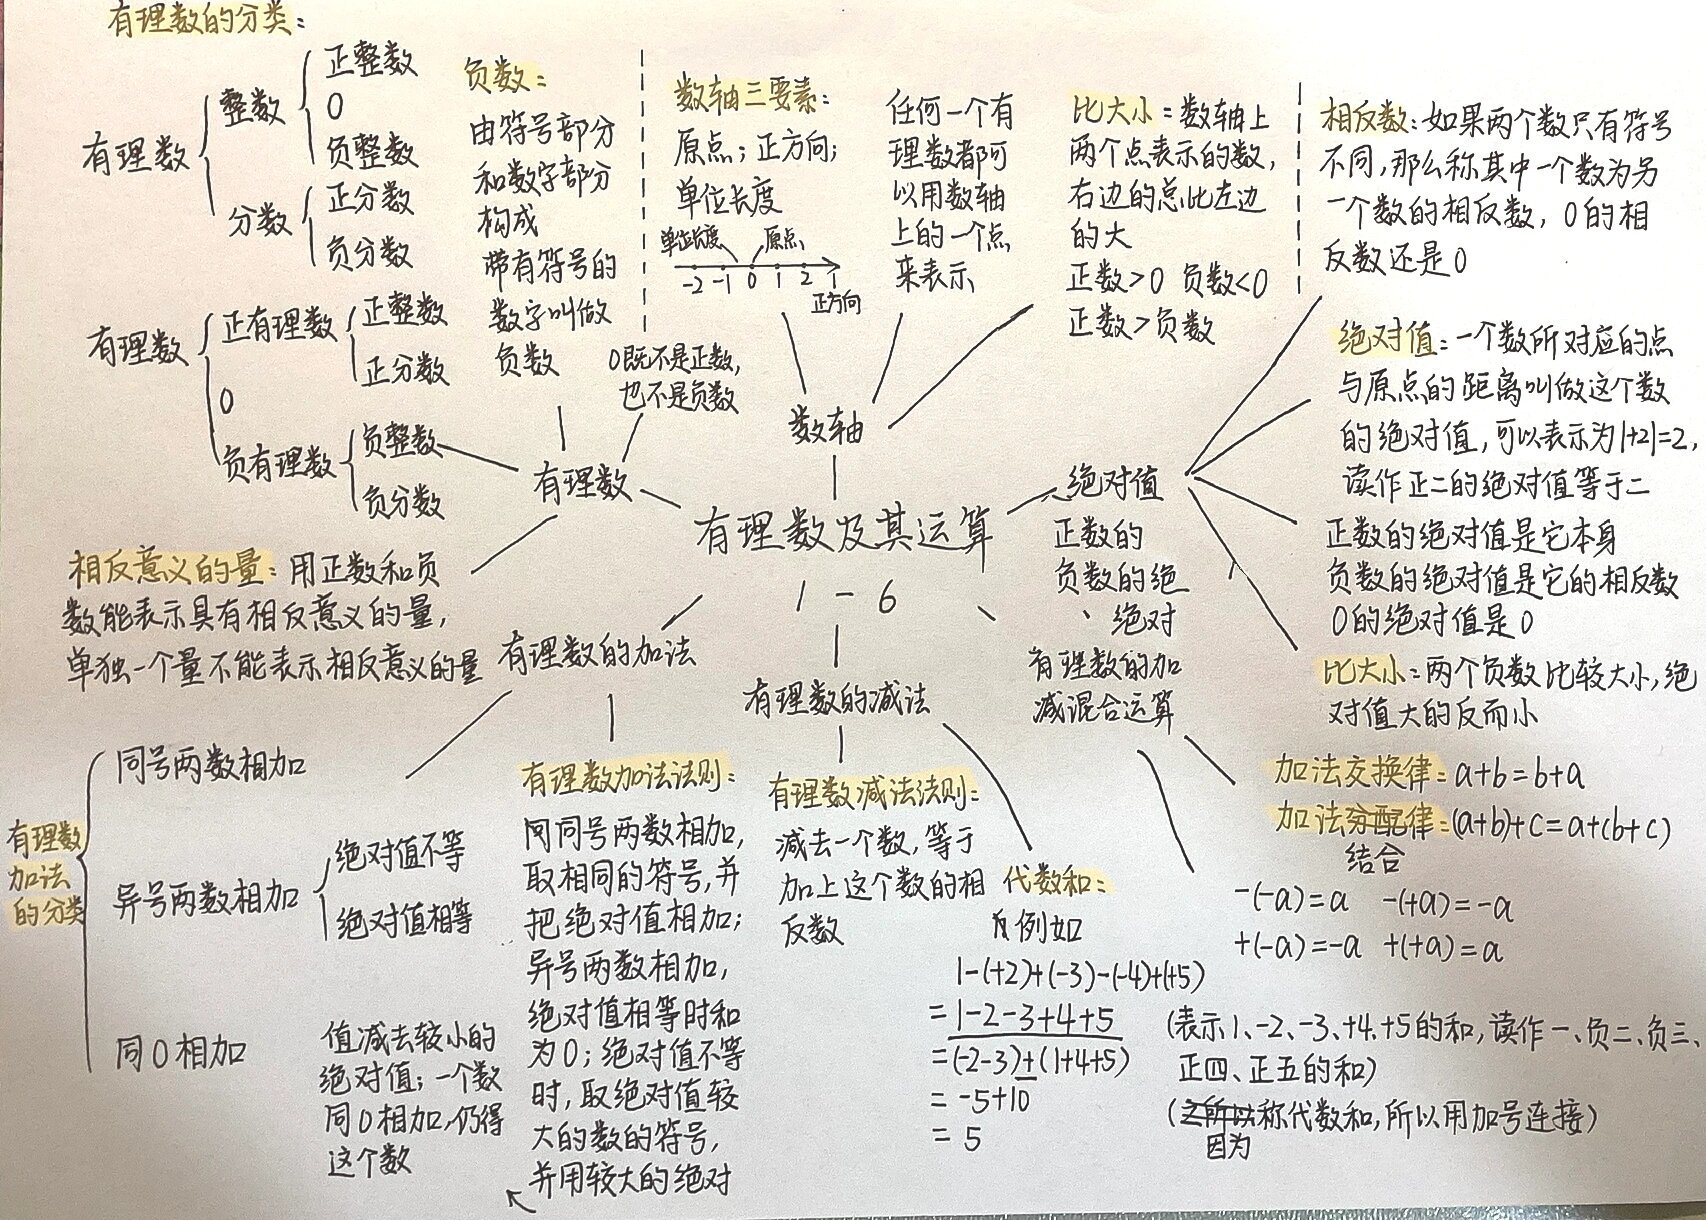 有理数的分类:
有理数
整数
正整数
0
负整数
分数
正分数
负分数
有理数
正有理数
正整数
正分数
0
负有理数
负整数
负分数
负数:
由符号部分
和数字部分
构成
带有符号的
数字叫做
负数
0既不是正数,
也不是负数
数轴三要素:
原点;正方向;
单位长度
单位长度
原点
-2 -1 0 1 2 1
正方向
任何一个有
理数都可
以用数轴
上的一个点
来表示
比大小:数轴上
两个点表示的数,
右边的总比左边
的大
正数>0 负数<0
正数>负数
相反数:如果两个数只有符号
不同,那么称其中一个数为另
一个数的相反数,0的相
反数还是0
绝对值:一个数所对应的点
与原点的距离叫做这个数
的绝对值,可以表示为|+2|=2,
读作正二的绝对值等于二
正数的绝对值是它本身
负数的绝对值是它的相反数
0的绝对值是0
比大小:两个负数比较大小,绝
对值大的反而小
数轴
有理数
绝对值
正数的
负数的绝
、绝对
有理数及其运算
1-6
相反意义的量:用正数和负
数能表示具有相反意义的量,
单独一个量不能表示相反意义的量
有理数的加法
有理数的减法
有理数的加
减混合运算
有理数
加法
的分类
同号两数相加
异号两数相加
绝对值不等
绝对值相等
同0相加
有理数加法法则:
同号两数相加,
取相同的符号,并
把绝对值相加;
异号两数相加,
绝对值相等时和
为0;绝对值不等
时,取绝对值较
大的数的符号,
并用较大的绝对
值减去较小的
绝对值;一个数
同0相加,仍得
这个数
有理数减法法则:
减去一个数,等于
加上这个数的相
反数
代数和:
例如
1-(+2)+(-3)-(-4)+(+5)
=1-2-3+4+5
=(-2-3)+(1+4+5)
=-5+10
=5
(表示1、-2、-3、+4、+5的和,读作一、负二、负三、
正四、正五的和)
(之所以称代数和,所以用加号连接)
因为
加法交换律:a+b=b+a
加法分配律:(a+b)+c=a+(b+c)
结合
-(-a)=a -(+a)=-a
+(-a)=-a +(+a)=a